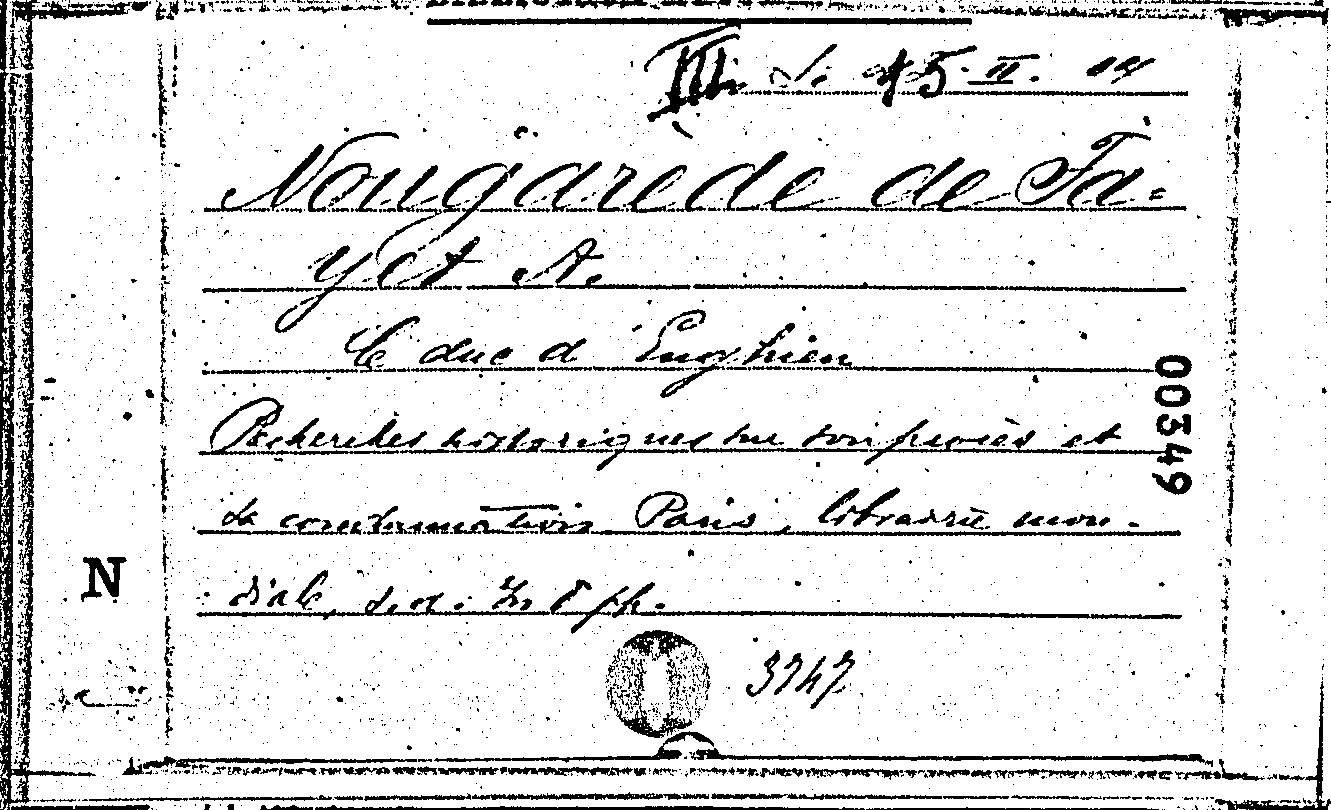 III. S. 45. II. 04
Nougarède de Fa-
yet A.
Le duc d'Enghien
Recherches historiques sur son procès et
sa condamnation Paris, librairie mon-
diale, s.a. In 8 ph.
3747
N
00349